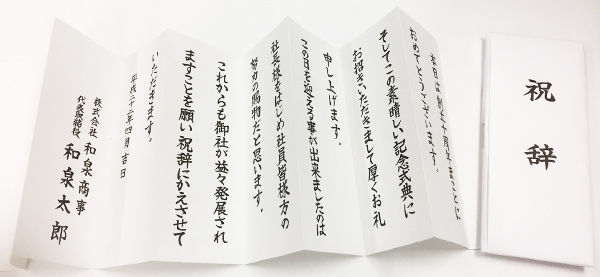 祝辞
本日は創立十周年まことに
おめでとうございます。
そしてこの素晴しい記念式典に
お招きいただきまして厚くお礼
申し上げます。
この日を迎える事が出来ましたのは
社長様をはじめ社員皆様方の
努力の賜物だと思います。
これからも御社が益々発展され
ますことを願い祝辞にかえさせて
いただきます。
平成二十二年四月吉日
株式会社 和泉商事
代表取締役 和泉太郎